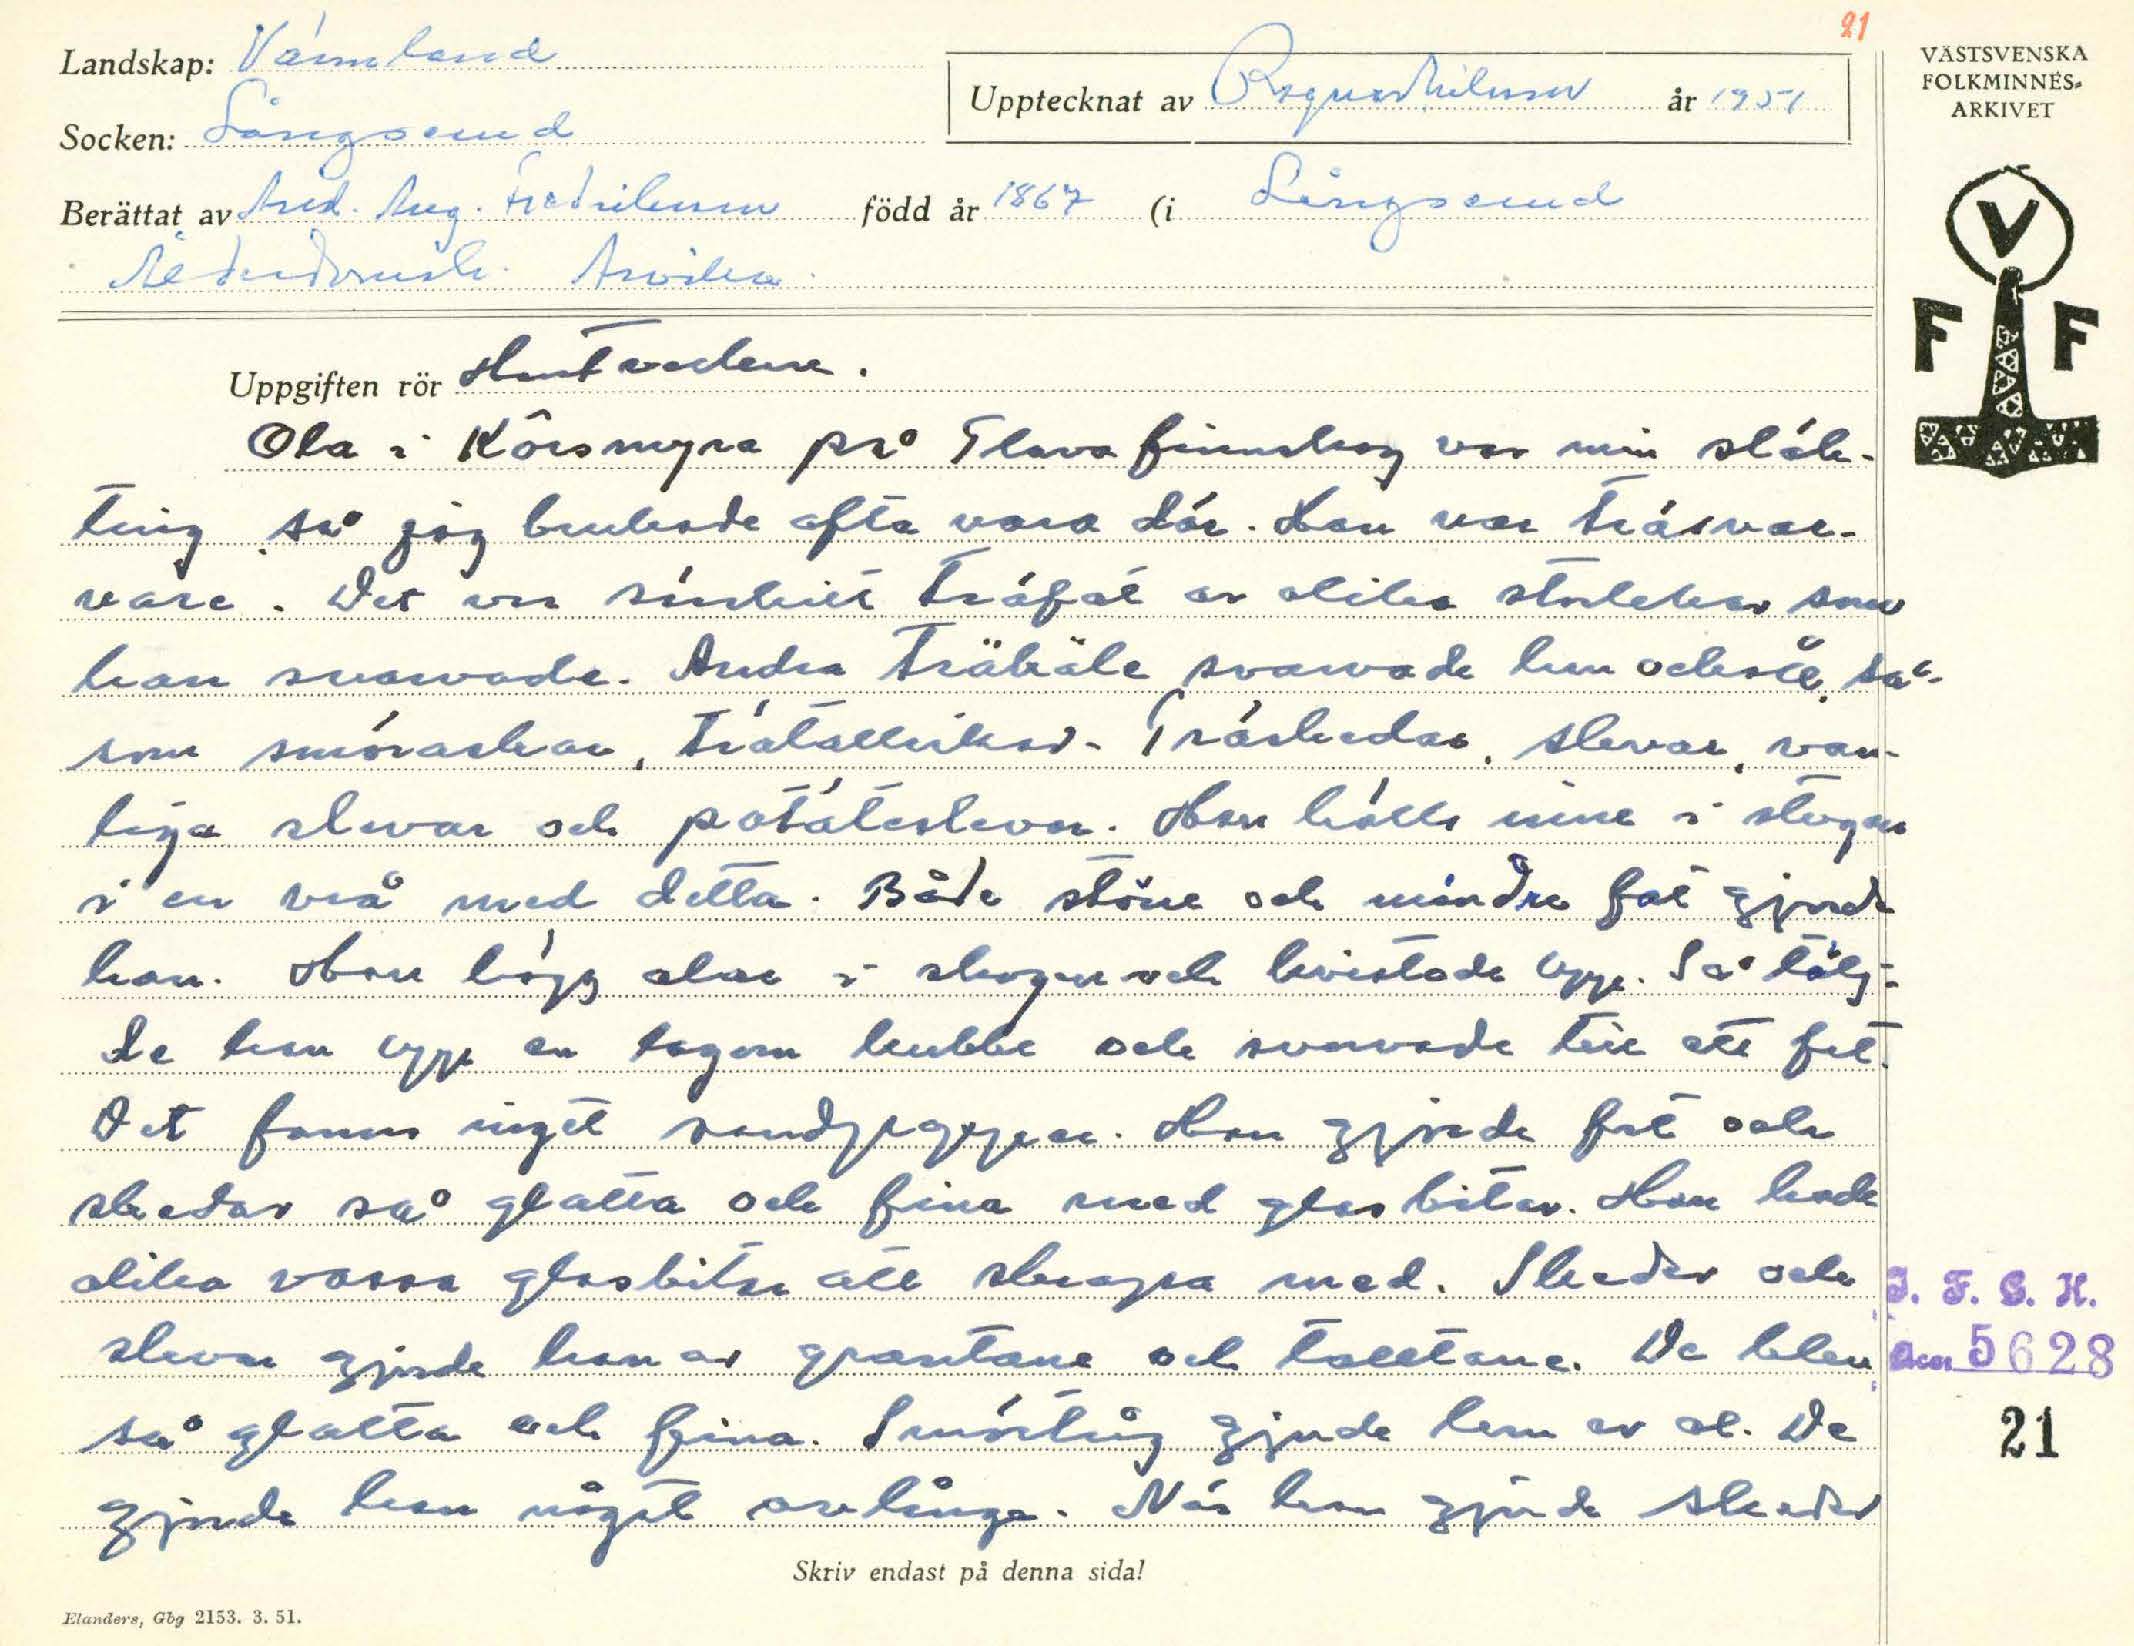 21
Landskap: Värmland
Upptecknat av Ragnar Nilsson år 1951
VÄSTSVENSKA
FOLKMINNES-
ARKIVET
Socken: Långserud
Berättat av And. Aug. Fredriksson född år 1867 (i Långserud
Ålderdomsh. Arvika.
V
F F
Uppgiften rör Hantverkare.
Ola i Kôrsmyra på Glava finnskog var min släk-
ting så jag brukade ofta vara där. Han var träsvar-
vare. Det var särskilt träfat av olika storlekar som
han svarvade. Andra träkäle svarvade han också så-
som smöraskar, trätallrikar. Träskedar, slevar, van-
liga slevar och potäteslevar. Han hölls inne i stugan
i en vrå med detta. Både större och mindre fat gjorde
han. Han högg alar i skogen och kvistade upp. Så tälj-
de han upp en lagom kubbe och svarvade till ett fat.
Det fanns inget sandpapper. Han gjorde fat och
skedar så glatta och fina med glasbitar. Han hade
olika vassa glasbitar att skrapa med. Skedar och
slevar gjorde han av grantane och talltane. De blev
så glatta och fina. Smörtråg gjorde han av al. De
gjorde han något avlånga. När han gjorde skedar
I. F. G. H.
Acc. 5628
21
Skriv endast på denna sida!
Elanders, Gbg 2153. 3. 51.